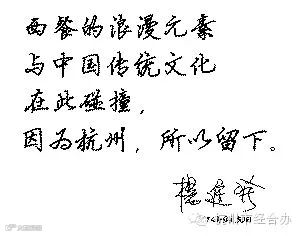 西餐的浪漫元素
与中国传统文化
在此碰撞，
因为杭州，所以留下。